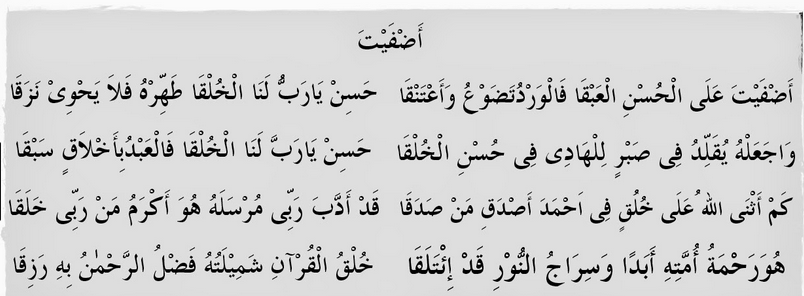 أَضْفَيْتَ
أَضْفَيْتَ عَلَى الْحُسْنِ الْعَبْقَا فَالْوَرْدُتَضَوْعُ وَأَعْتَنْقَا حَسِنْ يَارَبُّ لَنَا الْخُلْقَا طَهِّرْهُ فَلاَ يَحْوِىْ نَزَقَا
وَاجَعَلْهُ يُقَلِّدُ فِى صَبْرٍ لِلْهَادِى فِى حُسْنِ الْخُلْقَا حَسِنْ يَارَبَّ لَنَا الْخُلْقَا فَالْعَبْدُبِأَخْلَاقٍ سَبْقَا
كَمْ أَثْنَى اللهُ عَلَى خُلُقٍ فِى اَحْمَدَ أَصْدَقِ مَنْ صَدَقَا قَدْ أَدَّبَ رَبِّى مُرْسَلَهُ هُوَ أَكْرَمُ مَنْ رَبِّى خَلَقَا
هُوَرَحْمَةُ أُمَّتِهِ أَبَدًا وَسِرَاجُ النُّوْرِ قَدْ إِئْتَلَقَا خُلْقُ الْقُرْآنِ شَمِيْلَتُهُ فَضْلُ الرَّحْمٰنُ بِهِ رَزِقَا